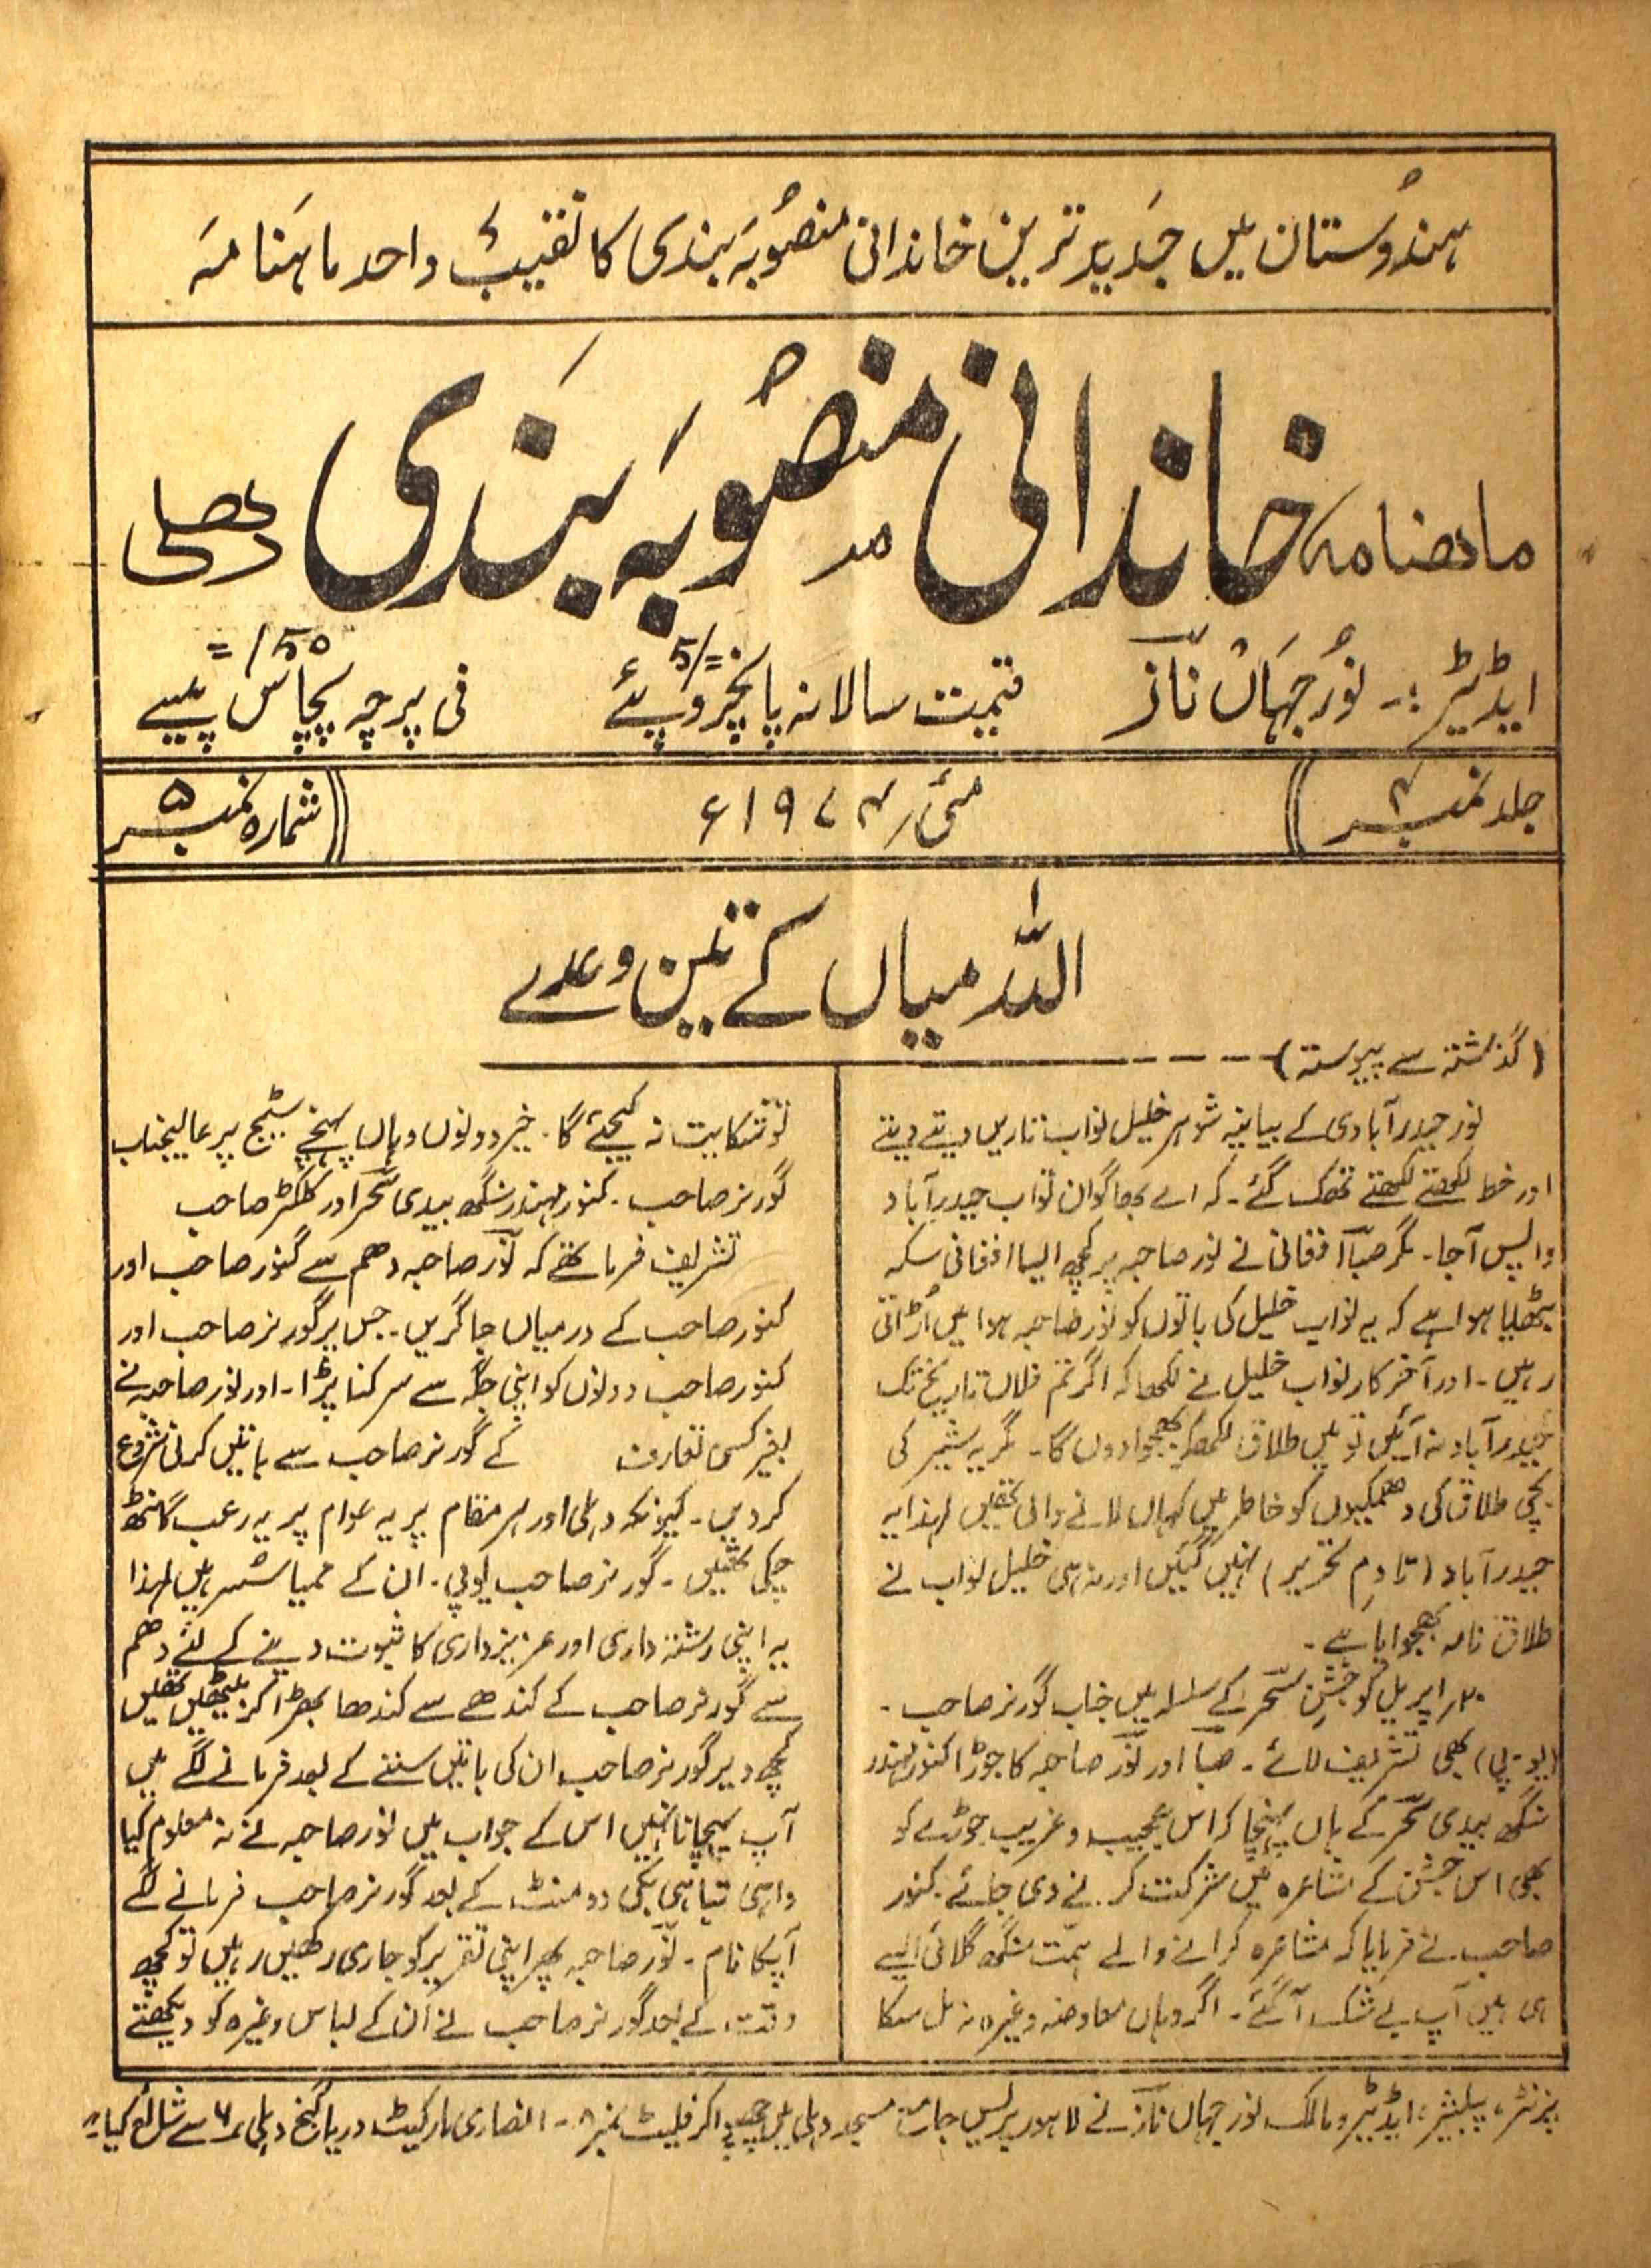 ہندُوستان میں جَدید ترین خاندانی منصُوبَہ بندی کا نقیبُ واحد ماہَنامَہ
ماھنامہ خاندانی منصُوبَہ بَندی دھلی
=/5
=/50
ایڈیٹر :۔ نُورجہَاں نازؔ قیمت سالانہ پانچروپئے فی پرچہ پچاس پیسے
جلد نمبر ۴ مئی ۱۹۷۴ء شمارہ نمبر ۵
اللہ میاں کے تین وعدے
(گذشتہ سے پیوستہ)
نور حیدرآبادی کے بیاہتہ شوہر خلیل نواب تاریں دیتے دیتے
اور خط لکھتے لکھتے تھک گئے۔ کہ اے بھاگوان تواب حیدرآباد
واپس آجا۔ مگر صباؔ افغانی نے نور صاحبہ پر کچھ ایسا افغانی سکہ
بٹھلایا ہوا ہے کہ یہ نواب خلیل کی باتوں کو نور صاحبہ ہوا میں اُڑاتی
رہیں۔ اور آخر کار نواب خلیل نے لکھا کہ اگر تم فلاں تاریخ تک
حیدرآباد نہ آئیں تو میں طلاق لکھکر بھجوادوں گا۔ مگر یہ شیر کی
بچی طلاق کی دھمکیوں کو خاطر میں کہاں لانے والی تھیں لہذا یہ
حیدرآباد (تا دمِ تحریر) نہیں گئیں اور نہ ہی خلیل نواب نے
طلاق نامہ بھجوایا ہے۔
۲۰؍ اپریل کو جشنِ سحرؔ کے سلسلہ میں جناب گورنر صاحب۔
(یو۔پی) بھی تشریف لائے۔ صباؔ اور نورؔ صاحبہ کا جوڑا کنور مہندر
سنگھ بیدی سحرؔ کے ہاں پہنچا کہ اس عجیب و غریب جوڑے کو
بھی اس جشن کے مشاعرہ میں شرکت کرنے دی جائے۔ کنور
صاحب نے فرمایا کہ مشاعرہ کرانے والے ہمّت سنگھ گلائی ایسے
ہی ہیں آپ بے شک آئیے۔ اگر وہاں معاوضہ وغیرہ نہ مل سکا
تو شکایت نہ کیجئے گا۔ خیر دونوں وہاں پہنچے سٹیج پر عالیجناب
گورنر صاحب۔ کنور مہندر سنگھ بیدی سحرؔ اور کلکٹر صاحب
تشریف فرما تھے کہ نورؔ صاحبہ دھم سے گنور صاحب اور
کنور صاحب کے درمیاں جا گریں۔ جس پر گورنر صاحب اور
کنور صاحب دونوں کو اپنی جگہ سے سرکنا پڑا۔ اور نور صاحبہ نے
بغیر کسی تعارف کے گورنر صاحب سے باتیں کرنی شروع
کردیں۔ کیونکہ دہلی اور ہر مقام پر یہ عوام پر یہ رعب گانٹھ
چکی تھیں۔ گورنر صاحب یوپی۔ ان کے ممیا سسر ہیں لہذا
یہ اپنی رشتہ داری اور عزیزداری کا ثبوت دینے کے لئے دھم
سے گورنر صاحب کے کندھے سے کندھا بھڑا کر بیٹھیں تھیں
کچھ دیر گورنر صاحب ان کی باتیں سننے کے بعد فرمانے لگے میں
آپ پہچانا نہیں اس کے جواب میں نور صاحبہ نے نہ معلوم کیا
واہی تباہی بکی دو منٹ کے بعد گورنر صاحب فرمانے لگے
آپکا نام۔ نورؔ صاحبہ پھر اپنی تقریر کو جاری رکھیں رہیں تو کچھ
وقت کے بعد گورنر صاحب نے اُن کے لباس وغیرہ کو دیکھتے
پرنٹر، پبلیشر، ایڈیٹر و مالک نور جہاں نازؔ نے لاہور پریس جامع مسجد دہلی میں چھپوا کر فلیٹ نمبر ۸۔ انصاری مارکیٹ دریا گنج دہلی ۶ سے شائع کیا۔